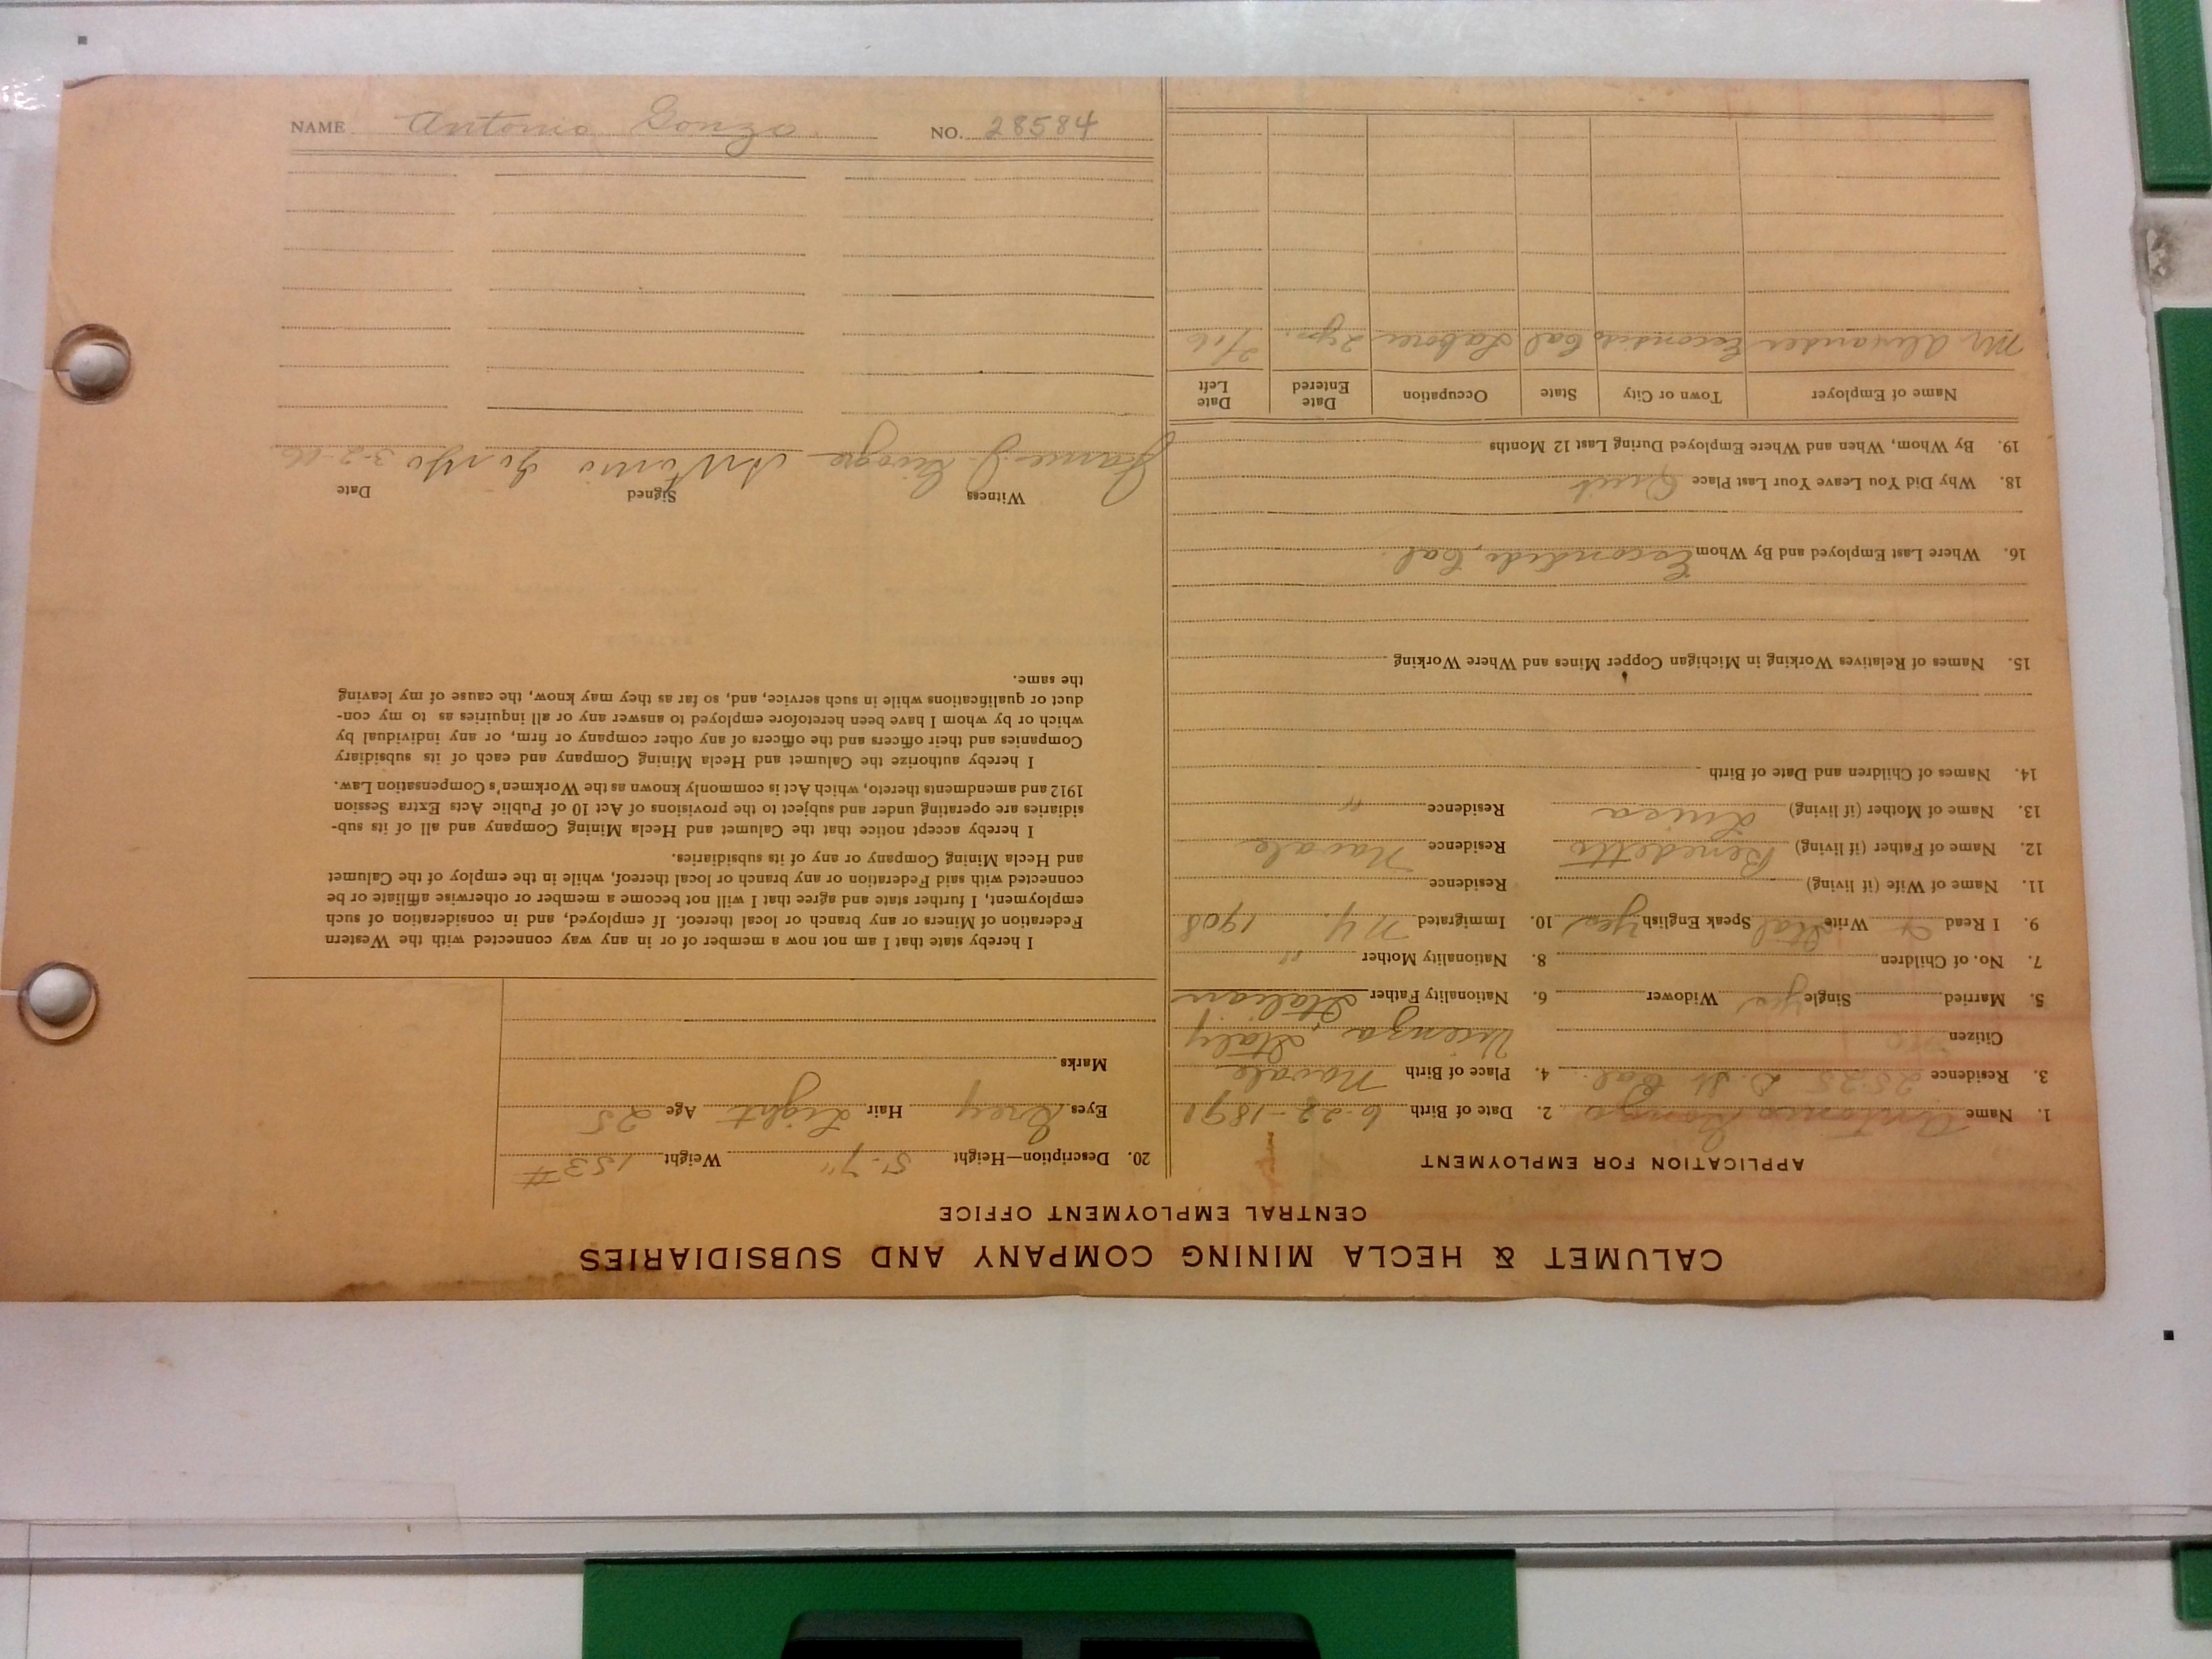 CALUMET & HECLA MINING COMPANY AND SUBSIDIARIES
CENTRAL EMPLOYMENT OFFICE
APPLICATION FOR EMPLOYMENT
1. Name Antonio Gonzo 2. Date of Birth 6-28-1890
3. Residence 2525 D. St Cal 4. Place of Birth Novale
Citizen no Vicenza, Italy
5. Married Single yes Widower 6. Nationality Father Italian
7. No. of Children 8. Nationality Mother "
9. I Read Write Ital Speak English yes 10. Immigrated N.Y. 1908
11. Name of Wife (if living) Residence
12. Name of Father (if living) Benedetto Residence Novale
13. Name of Mother (if living) Luisa Residence "
14. Names of Children and Date of Birth
15. Names of Relatives Working in Michigan Copper Mines and Where Working
16. Where Last Employed and By Whom Escondido, Cal.
18. Why Did You Leave Your Last Place Quit
19. By Whom, When and Where Employed During Last 12 Months
Name of Employer Town or City State Occupation Date Entered Date Left
Mr Alexander Escondido Cal Laborer 2 yrs. 2/16
20. Description—Height 5'-7" Weight 153#
Eyes Grey Hair Light Age 25
Marks
I hereby state that I am not now a member of or in any way connected with the Western
Federation of Miners or any branch or local thereof. If employed, and in consideration of such
employment, I further state and agree that I will not become a member or otherwise affiliate or be
connected with said Federation or any branch or local thereof, while in the employ of the Calumet
and Hecla Mining Company or any of its subsidiaries.
I hereby accept notice that the Calumet and Hecla Mining Company and all of its sub-
sidiaries are operating under and subject to the provisions of Act 10 of Public Acts Extra Session
1912 and amendments thereto, which Act is commonly known as the Workmen's Compensation Law.
I hereby authorize the Calumet and Hecla Mining Company and each of its subsidiary
Companies and their officers and the officers of any other company or firm, or any individual by
which or by whom I have been heretofore employed to answer any or all inquiries as to my con-
duct or qualifications while in such service, and, so far as they may know, the cause of my leaving
the same.
Witness Signed Date
James J. Antonio Gonzo 3-2-16
NAME Antonio Gonzo. NO. 28584